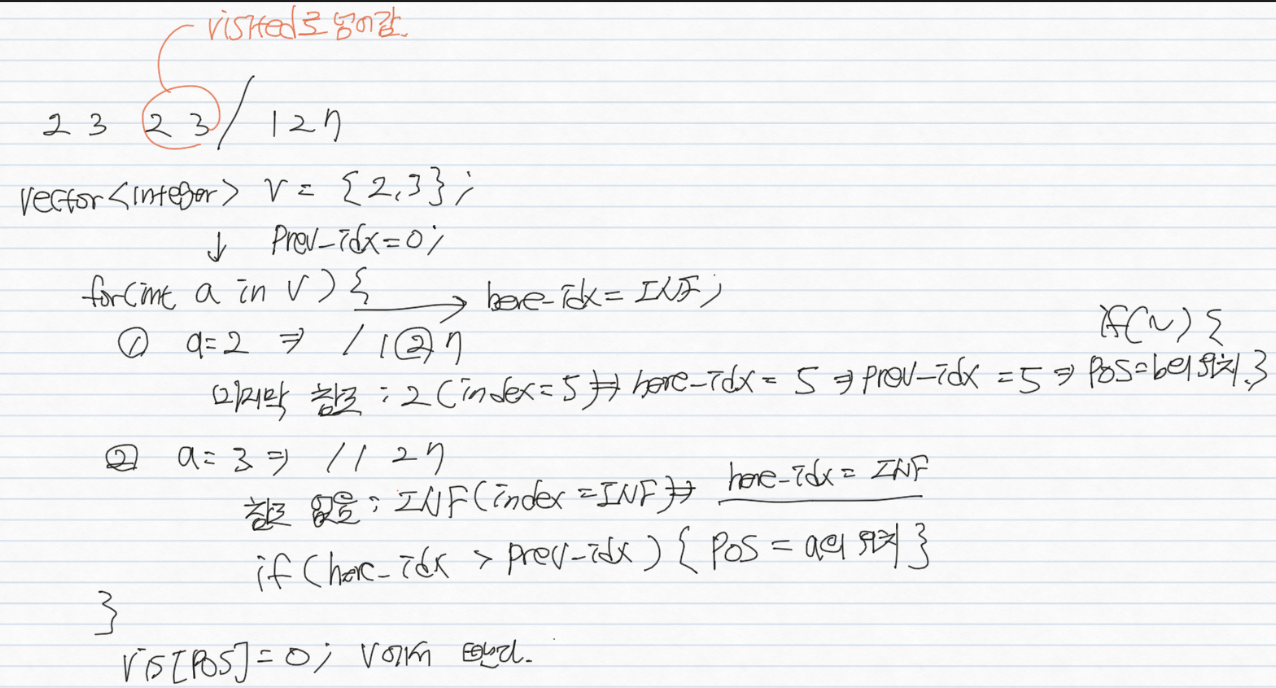 visited로 넘어감.
2 3 2 3 / 1 2 7
vector<integer> v = {2,3};
↓ prev_idx=0;
for(int a in v) { → here_idx = INF;
① a=2 ⇒ / 1 ② 7
if(~) {
마지막 참조 : 2 (index=5) ⇒ here_idx = 5 ⇒ prev_idx = 5 ⇒ pos= 위치.}
② a=3 ⇒ / 1 2 7
참조 없음 : INF (index=INF) ⇒ here_idx = INF
if (here_idx > prev_idx) { pos = a의 위치 }
}
vis[pos]=0; v에서 뺀다.